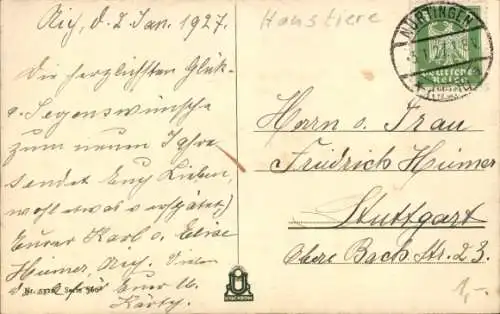 Aich, d. 2. Jan. 1927.
Die herzlichsten Glück-
u. Segenswünsche
zum neuen Jahre
sendet Euch Lieben,
wohl etwas verspätet)
Eurer Karl u. Elise
Heimer, Aich. Vielen
Nr. Serie
Haustiere
NÜRTINGEN
Deutsches
Reich
Herrn u. Frau
Friedrich Heimer
Stuttgart
Obere Bach Str. 23.
1,-